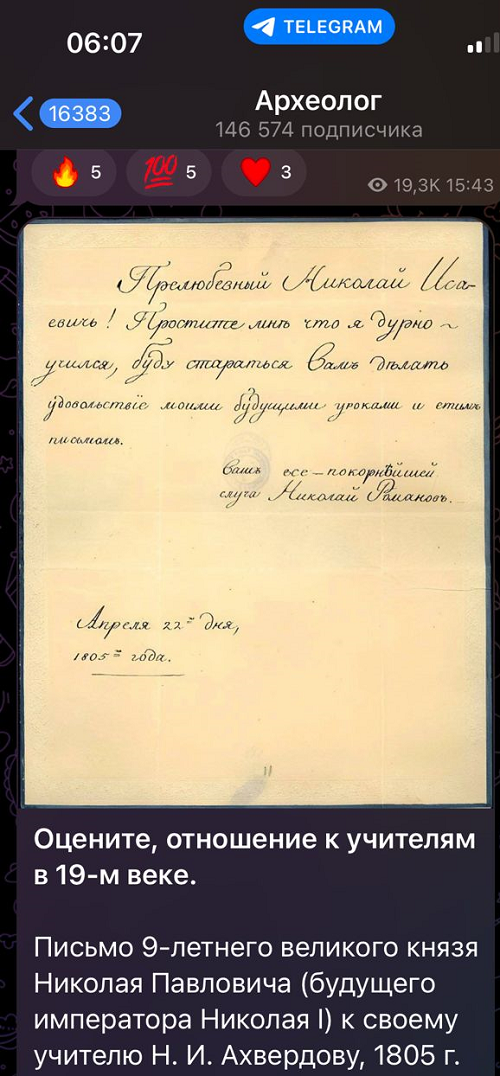 06:07
TELEGRAM
16383
Археолог
146 574 подписчика
5
5
3
19,3K 15:43
Прелюбезный Николай Иса-
евичь! Простите мнѣ что я дурно ~
учился, буду стараться Вамъ дѣлать
удовольствіе моими будущими уроками и етимъ
письмомъ.
Вашъ все-покорнѣйшей
слуга Николай Романовъ.
Апреля 22= дня,
1805= года.
Оцените, отношение к учителям
в 19-м веке.
Письмо 9-летнего великого князя
Николая Павловича (будущего
императора Николая I) к своему
учителю Н. И. Ахвердову, 1805 г.